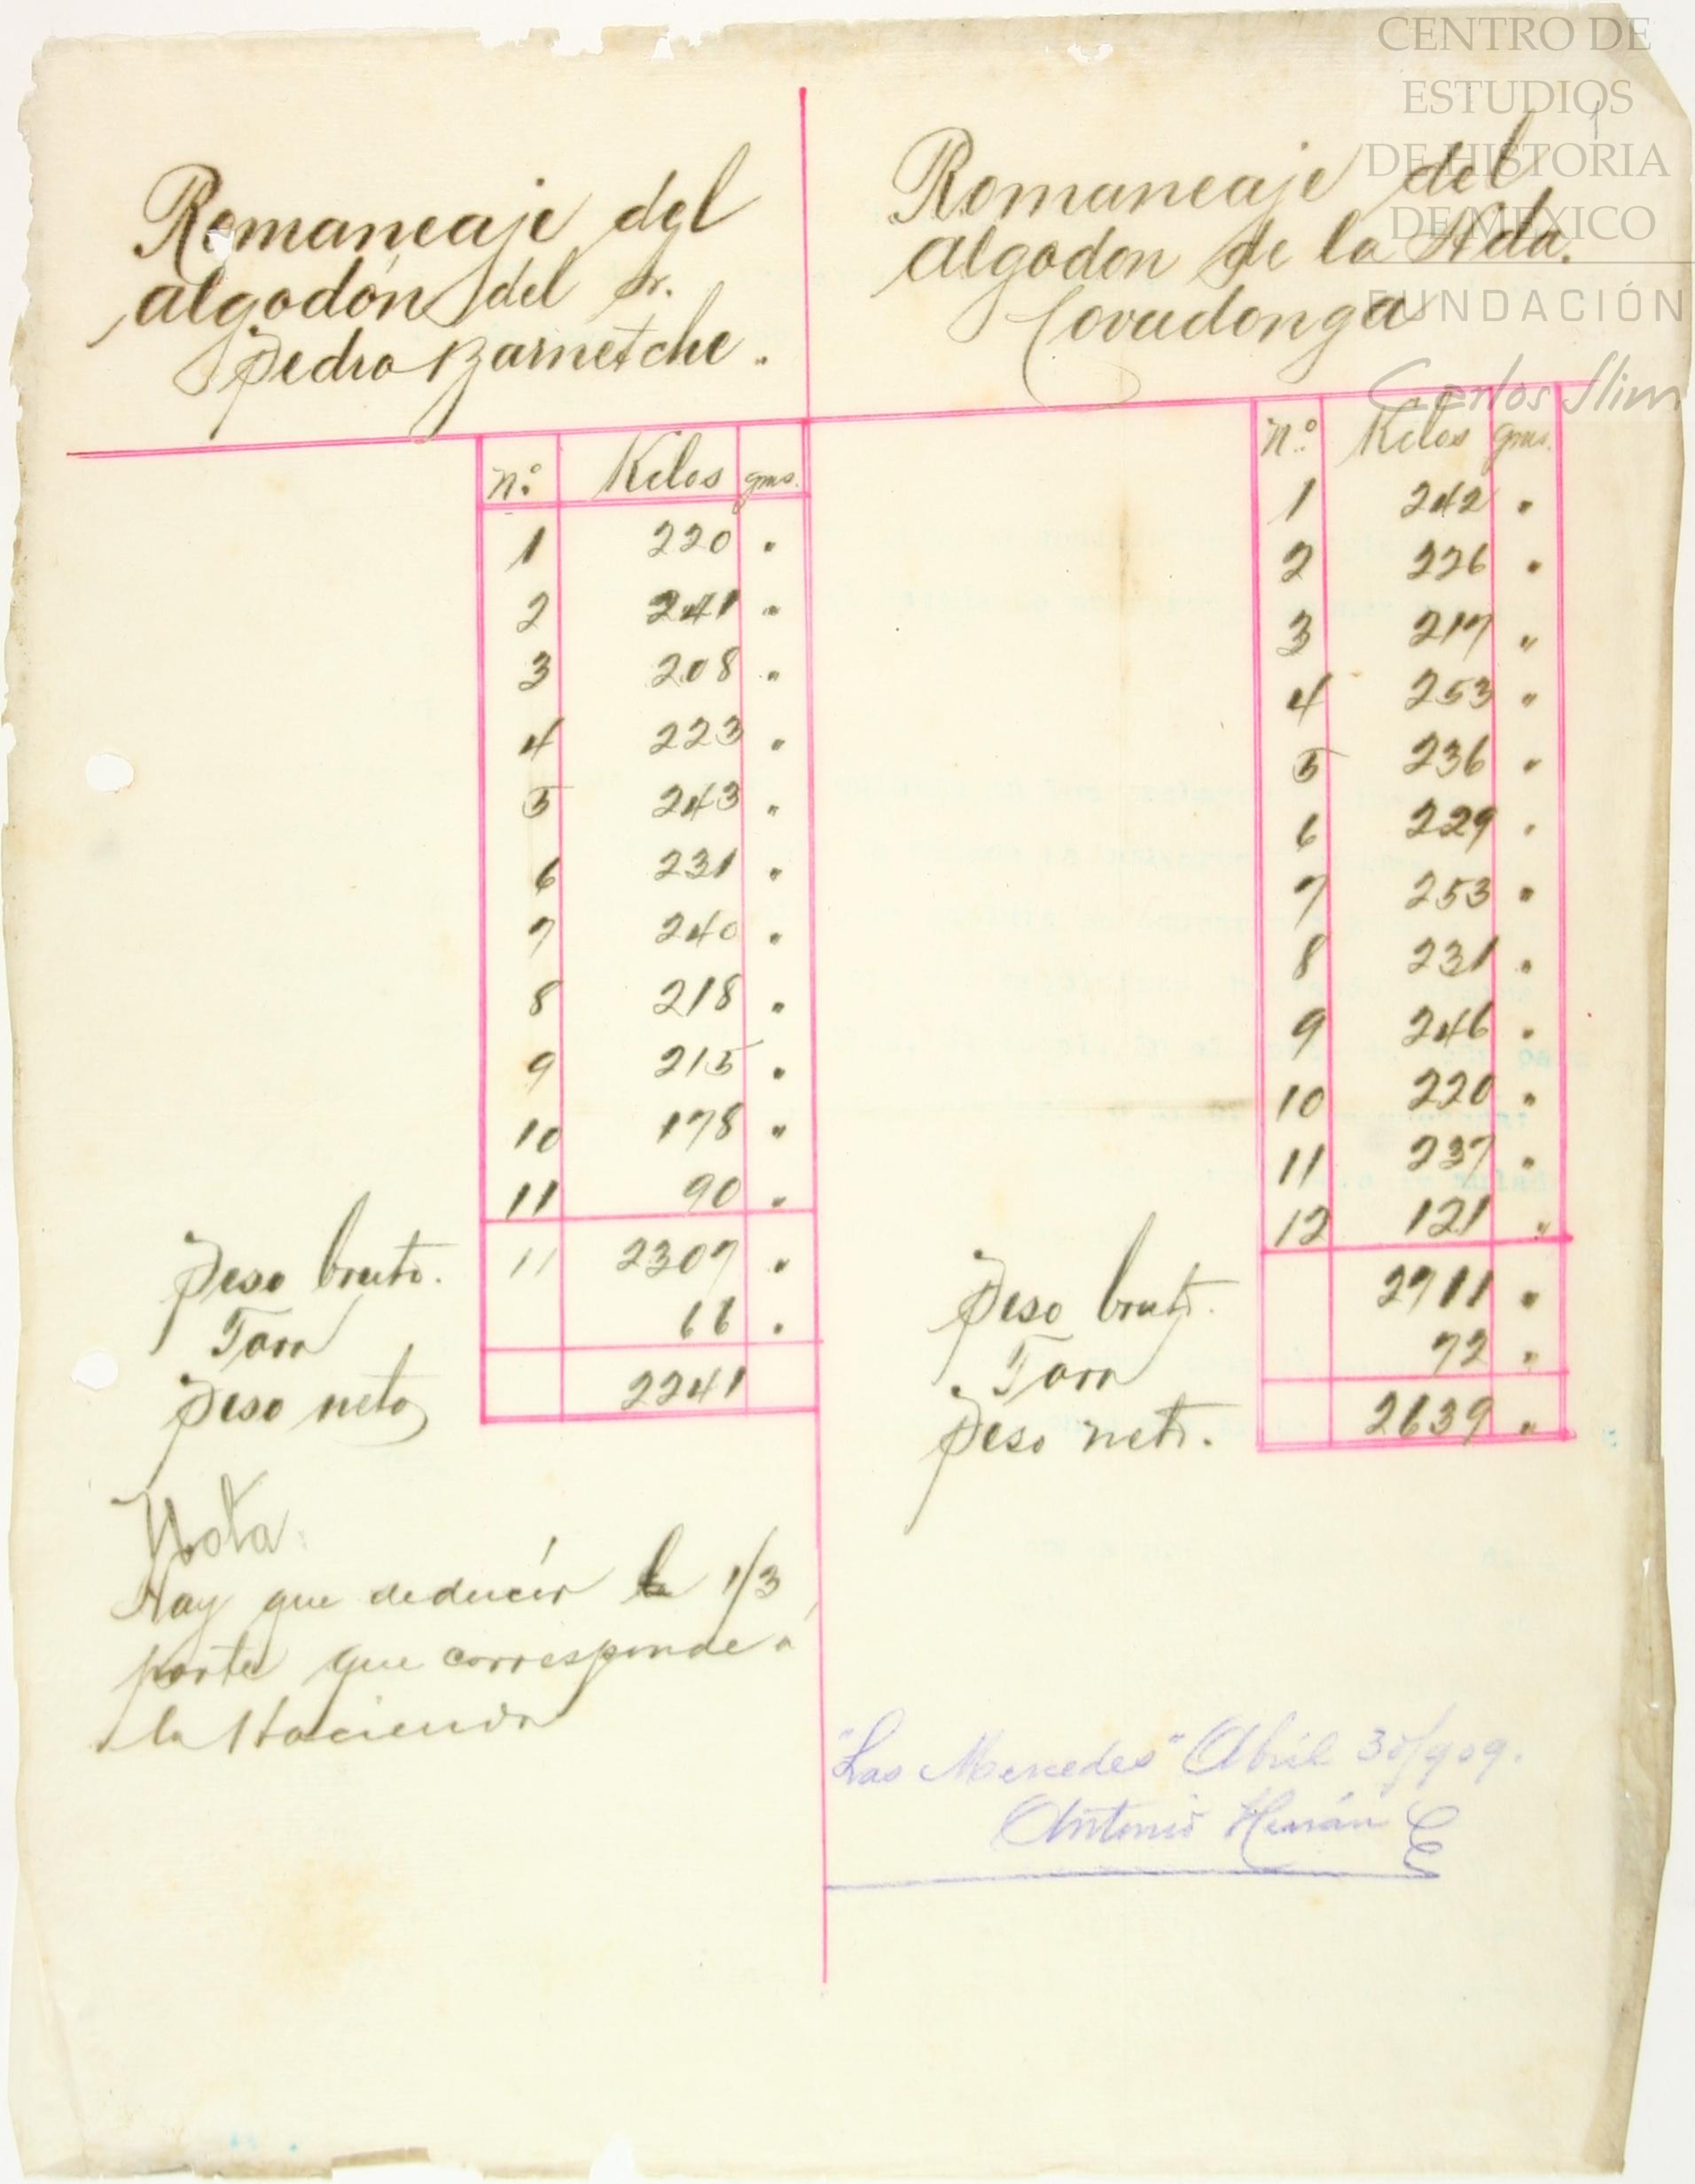 Romaneaje del
algodón del Sr.
Pedro Barnetche.
nº Kilos gms.
1 220 "
2 241 "
3 208 "
4 223 "
5 243 "
6 231 "
7 240 "
8 218 "
9 215 "
10 178 "
11 90 "
Peso bruto. 11 2307 "
Tara 66 "
Peso neto 2241
Nota
Hay que deducir la 1/3
parte que corresponde á
la Hacienda
Romaneaje del
algodon de la Hda.
Covadonga
nº Kilos gms.
1 242 "
2 226 "
3 217 "
4 253 "
5 236 "
6 229 "
7 253 "
8 231 "
9 246 "
10 220 "
11 237 "
12 121 "
Peso bruto. 2711 "
Tara 72 "
Peso neto. 2639 "
"Las Mercedes" Abril 30/909.
Antonio
CENTRO DE
ESTUDIOS
DE HISTORIA
DE MÉXICO
FUNDACIÓN
Carlos Slim